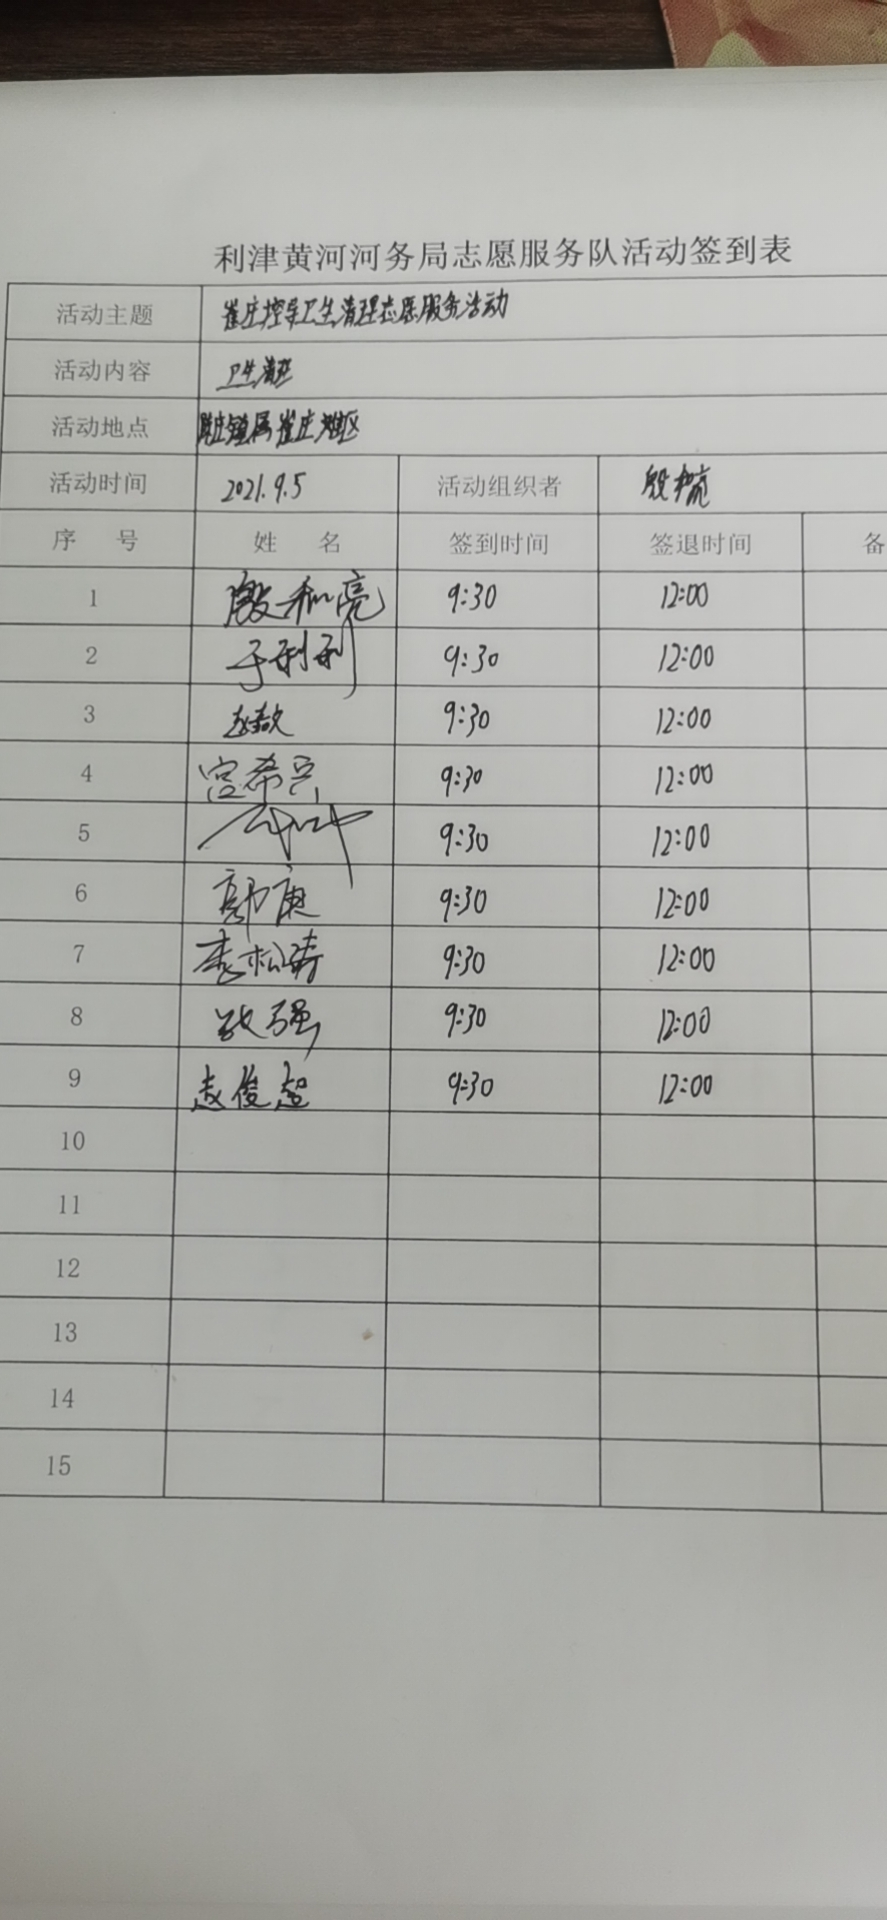 利津黄河河务局志愿服务队活动签到表
活动主题 崔庄控导卫生清理志愿服务活动
活动内容 卫生清理
活动地点 崔庄
活动时间 2021.9.5 活动组织者 殷和亮
序 号 姓 名 签到时间 签退时间 备
1 殷和亮 9:30 12:00
2 于利利 9:30 12:00
3 9:30 12:00
4 宫希兵 9:30 12:00
5 9:30 12:00
6 郭庚 9:30 12:00
7 李松涛 9:30 12:00
8 强 9:30 12:00
9 赵俊超 9:30 12:00
10
11
12
13
14
15